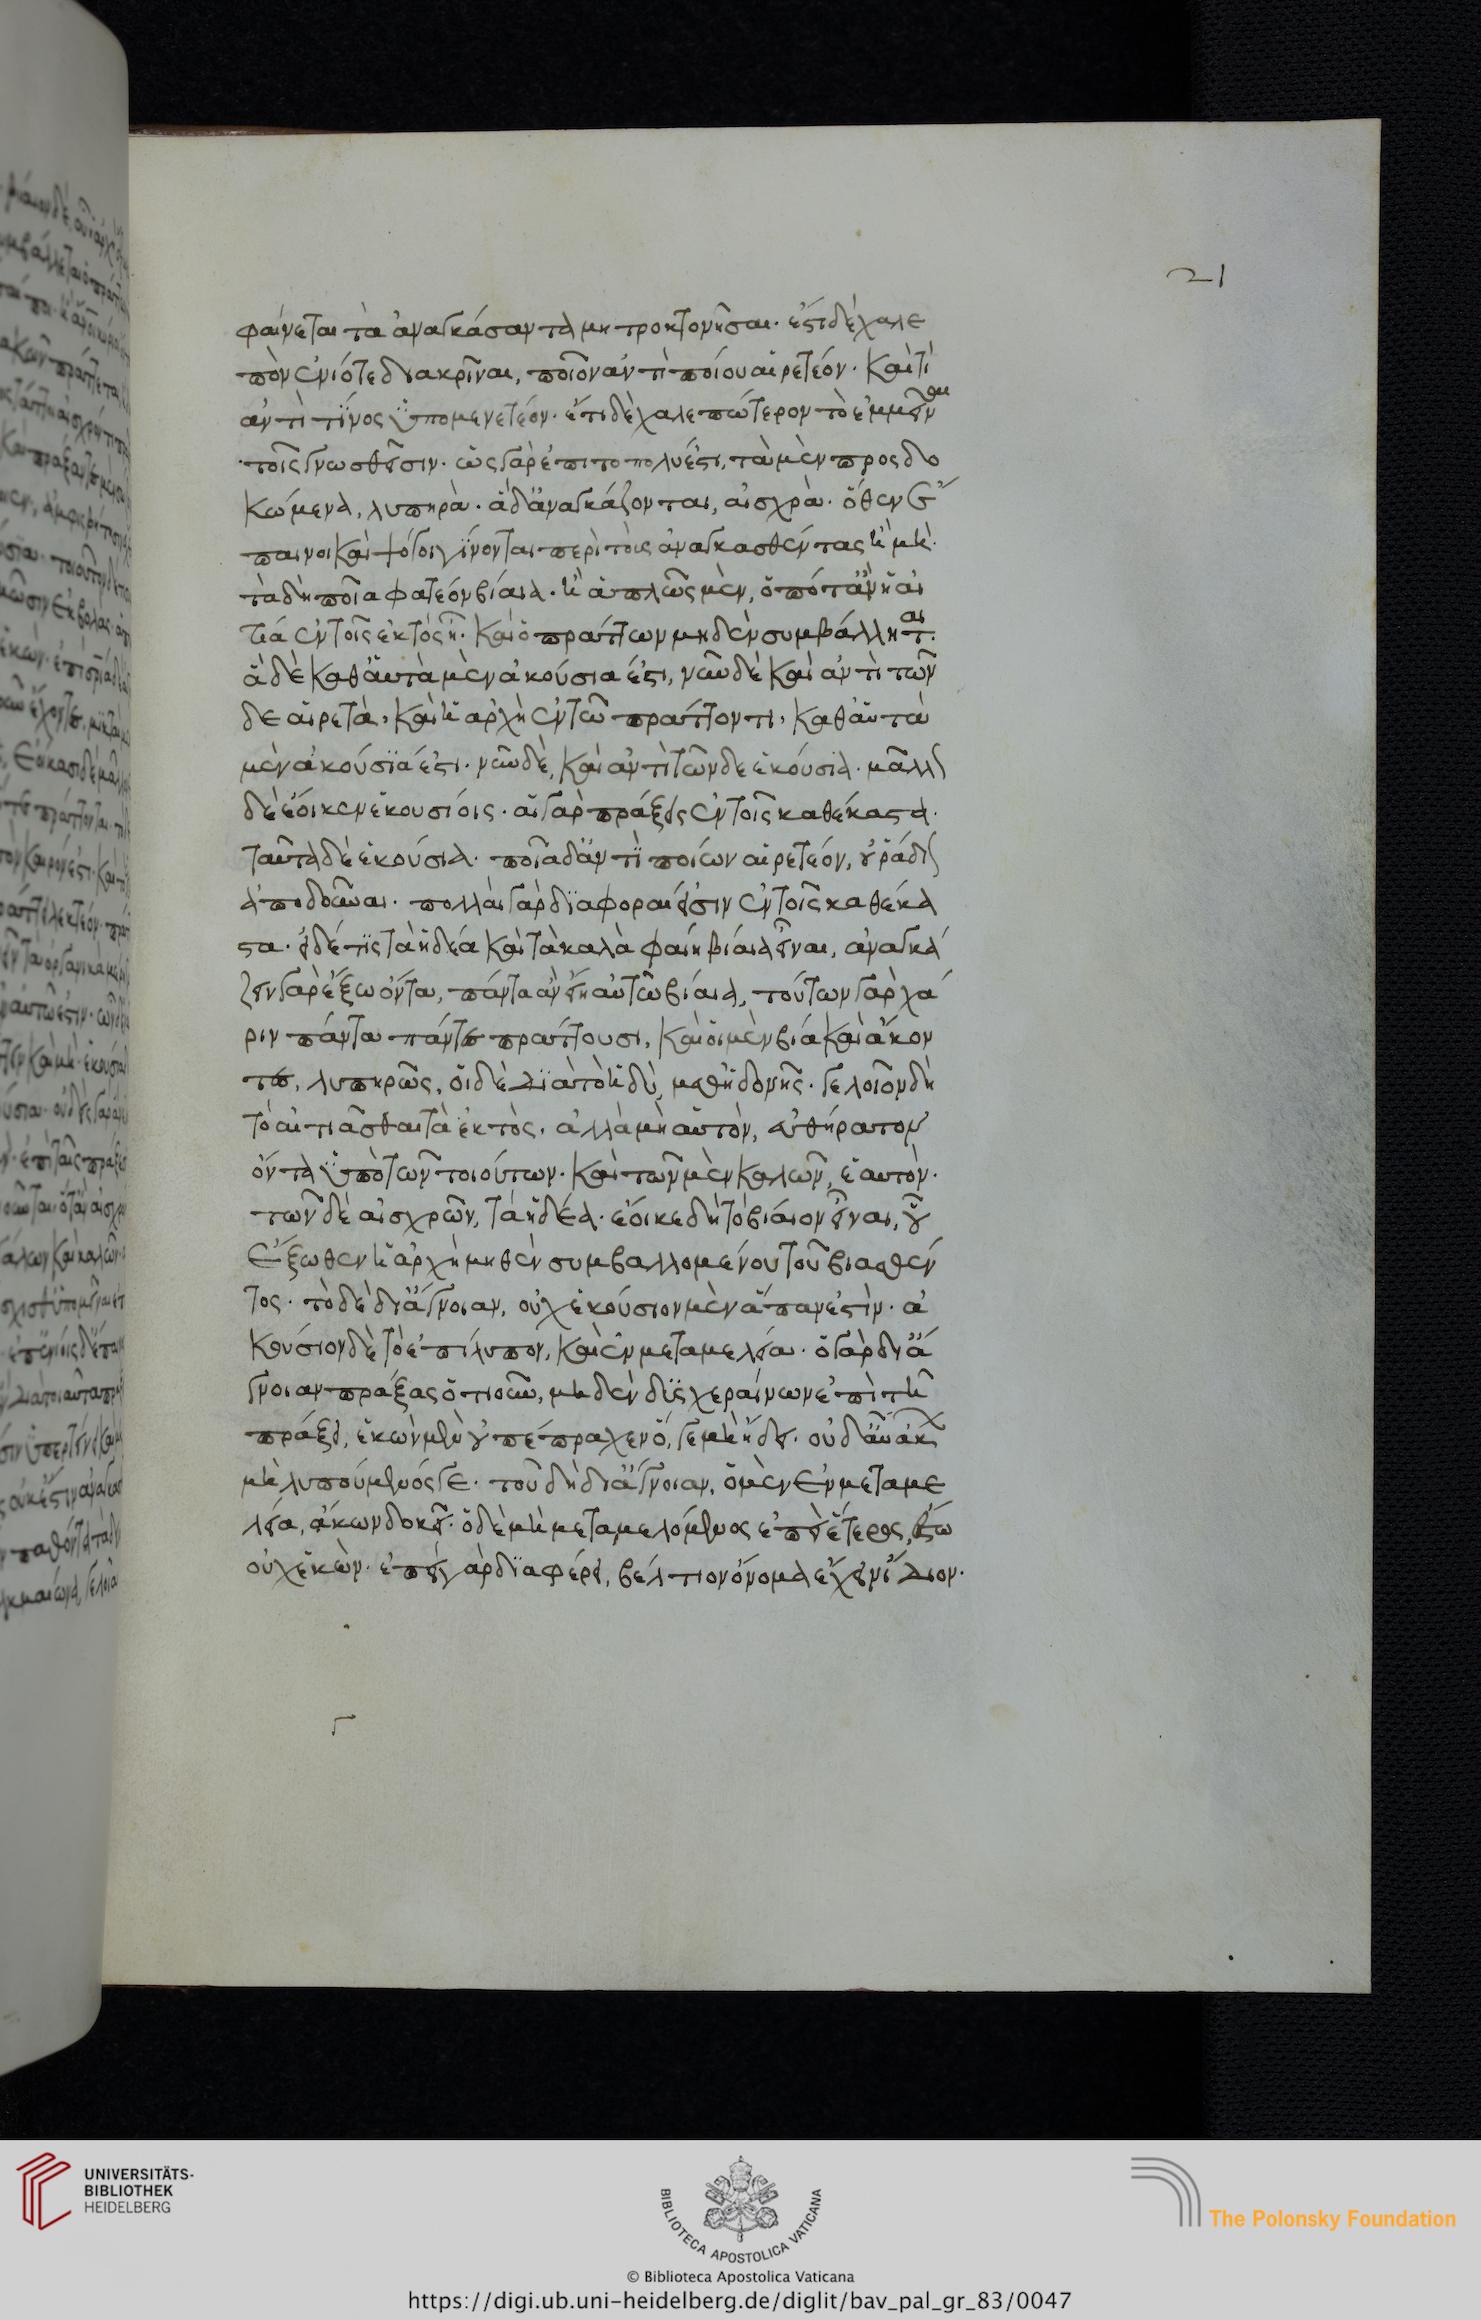 21
φαίνεται τὰ ἀναγκάσαντα μητροκτονῆσαι. ἔστι δὲ χαλε
πὸν ἐνιότε διακρῖναι, ποῖον ἀντὶ ποίου αἱρετέον. καὶ τί
ἀντὶ τίνος ὑπομενετέον. ἔτι δὲ χαλεπώτερον τὸ ἐμμεῖναι
τοῖς γνωσθεῖσιν. ὡς γὰρ ἐπιτοπολύ ἐστι, τὰ μὲν προσδο
κώμενα, λυπηρὰ. ἃ δ' ἀναγκάζονται, αἰσχρὰ. ὅθεν ἔ
παινοι καὶ ψόγοι γίνονται περὶ τοὺς ἀναγκασθέντας ἢ μή.
τὰ δὴ ποῖα φατέον βίαια. ἢ ἁπλῶς μὲν, ὁπότ' ἂν ἡ αἰ
τία ἐν τοῖς ἐκτός ᾖ. καὶ ὁ πράττων μηδὲν συμβάλληται.
ἃ δὲ καθ' αὑτὰ μὲν ἀκούσια ἐστι, νῦν δὲ καὶ ἀντὶ τῶν
δε αἱρετὰ, καὶ ἡ ἀρχὴ ἐν τῶ πράττοντι, καθ' αὑτὰ
μὲν ἀκούσϊά ἐστι. νῦν δὲ, καὶ ἀντὶ τῶνδε ἑκούσϊα. μᾶλλον
δὲ ἔοικεν ἑκουσίοις. αἱ γὰρ πράξεις ἐν τοῖς καθέκαστα.
ταῦτα δὲ ἑκούσια. ποῖα δ' ἀντὶ ποίων αἱρετέον, οὐ ῥάδιον
ἀποδοῦναι. πολλαὶ γὰρ δϊαφοραὶ εἰσὶν ἐν τοῖς καθέκα
στα. εἰ δέ τϊς τὰ ἡδέα καὶ τὰ καλὰ φαίη βίαια εἶναι, ἀναγκά
ζειν γὰρ ἔξω ὄντα, πάντα ἂν εἴη αὐτῶ βίαια, τούτων γὰρ χά
ριν πάντα πάντες πράττουσι, καὶ οἱ μὲν βία καὶ ἄκον
τες, λυπηρῶς, οἱ δὲ διὰ τὸ ἡδὺ, μεθ' ἡδονῆς. γελοῖον δὴ
τὸ αἰτιᾶσθαι τὰ ἐκτὸς. ἀλλὰ μὴ αὑτὸν, εὐθήρατον
ὄντα ὑπὸ τῶν τοιούτων. καὶ τῶν μὲν καλῶν, ἑαυτὸν.
τῶν δὲ αἰσχρῶν, τὰ ἡδέα. ἔοικε δὴ τὸ βίαιον εἶναι, οὗ
ἔξωθεν ἡ ἀρχὴ μηθὲν συμβαλλομένου τοῦ βιασθέν
τος. τὸ δὲ δι' ἄγνοιαν, οὐχ ἑκούσιον μὲν ἅπαν ἐστὶν. ἀ
κούσιον δὲ τὸ ἐπίλυπον, καὶ ἐν μεταμελεία. ὁ γὰρ δι' ἄ
γνοιαν πράξας ὁτιοῦν, μηδὲν δϋσχεραίνων ἐπὶ τῆ
πράξει, ἑκὼν μὲν οὐ πέπραχεν ὅ, γε μὴ ἤδει. οὐδ' αὖ ἄκων
μὴ λυπούμενός γε. τοῦ δὴ δι' ἄγνοιαν, ὁ μὲν ἐν μεταμε
λεία, ἄκων δοκεῖ. ὁ δὲ μὴ μεταμελόμενος ἐπεὶ ἕτερος, ἔστω
οὐχ ἑκὼν. ἐπεὶ γὰρ δϊαφέρει, βέλτιον ὄνομα ἔχειν ἴδιον.
UNIVERSITÄTS-
BIBLIOTHEK
HEIDELBERG
BIBLIOTECA APOSTOLICA VATICANA
The Polonsky Foundation
© Biblioteca Apostolica Vaticana
https://digi.ub.uni-heidelberg.de/diglit/bav_pal_gr_83/0047